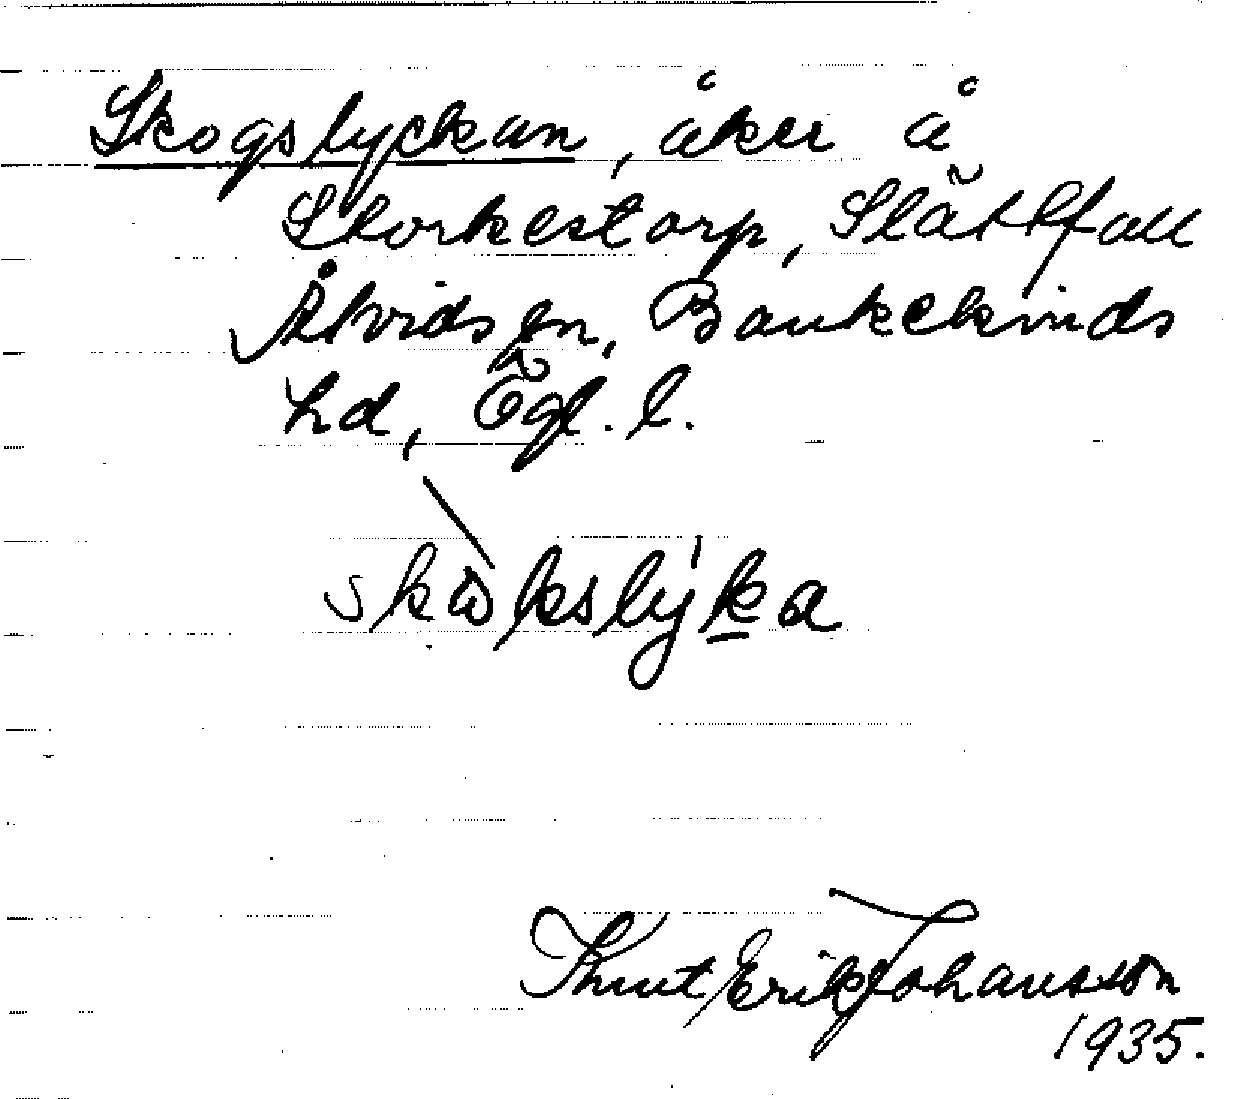 Skogslyckan, åker å
Storkestorp, Slätfall
Åtvids sn, Bankekinds
hd, Ögl. l.
skωkslyka
Knut Erik Johansson
1935.